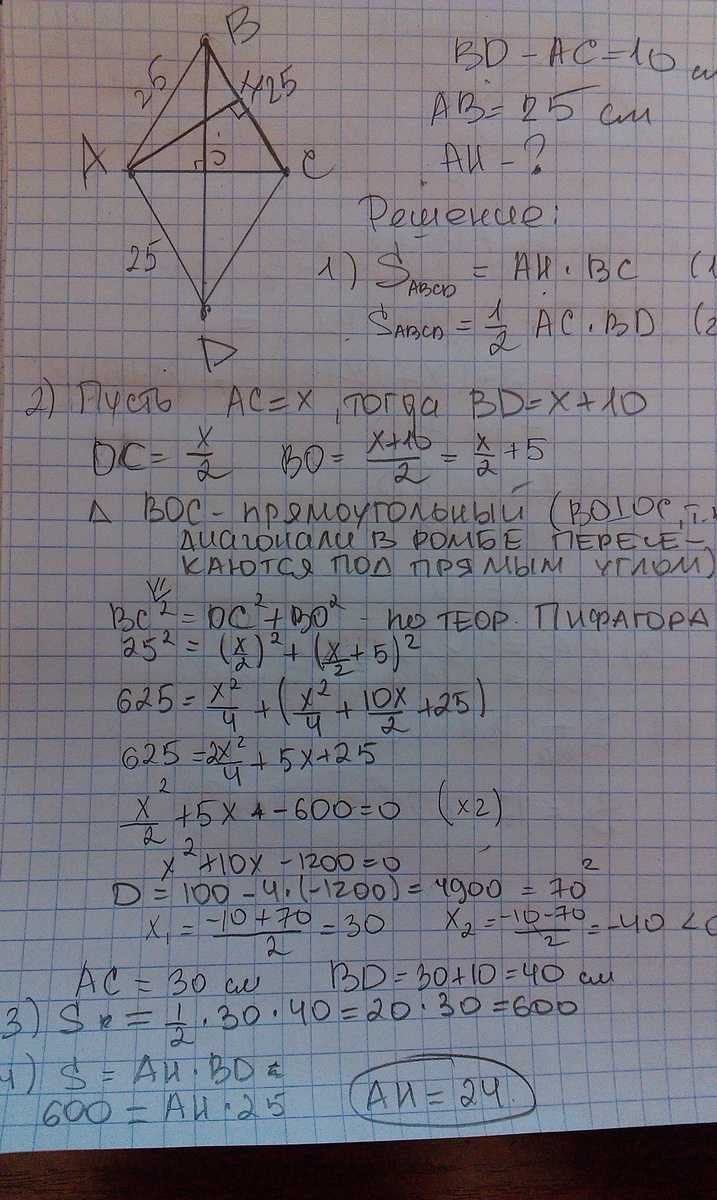 B
25
H 25
A
O
C
25
D
BD - AC = 10 см
AB = 25 см
AH - ?
Решение:
1) S_ABCD = AH · BC (1
S_ABCD = 1/2 AC · BD (2
2) Пусть AC = x, тогда BD = x + 10
OC = x/2 BO = (x+10)/2 = x/2 + 5
Δ BOC - прямоугольный (BO⊥OC, т.к
диагонали в ромбе пересе-
каются под прямым углом)
⇓
BC² = OC² + BO² - по теор. Пифагора
25² = (x/2)² + (x/2 + 5)²
625 = x²/4 + (x²/4 + 10x/2 + 25)
625 = 2x²/4 + 5x + 25
x²/2 + 5x - 600 = 0 (x2)
x² + 10x - 1200 = 0
D = 100 - 4·(-1200) = 4900 = 70²
x₁ = (-10+70)/2 = 30 x₂ = (-10-70)/2 = -40 < 0
AC = 30 см BD = 30 + 10 = 40 см
3) S = 1/2 · 30 · 40 = 20 · 30 = 600
4) S = AH · BD
600 = AH · 25 AH = 24.